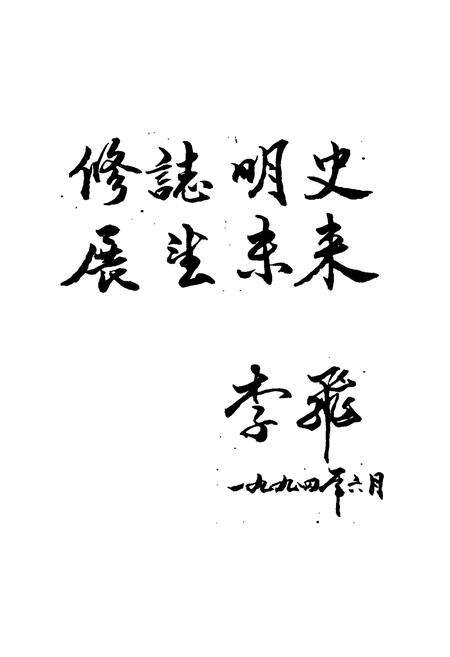 修誌明史
展望未来
李飛
一九九四年六月